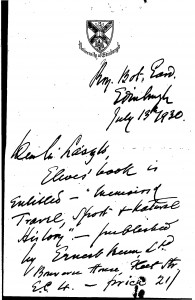 University of Edinburgh
Roy. Bot. Gard.
Edinburgh
July 15th 1930.
Elwes' book is
entitled — "Memoirs of
Travel, Sport & Natural
History" — published
by Ernest Benn Ltd
Bouverie House, Fleet St,
E.C. 4. — price 21/